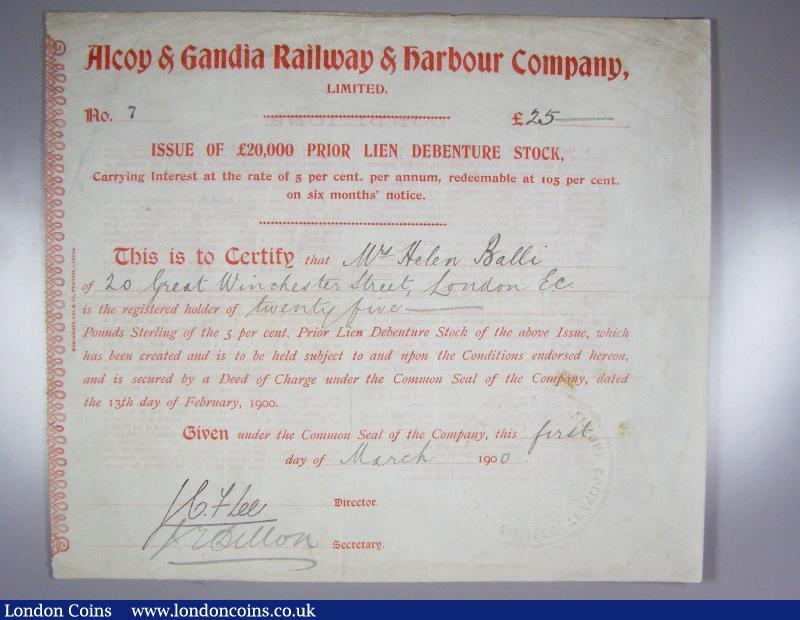 Alcoy & Gandia Railway & Harbour Company,
LIMITED.
No. 7 £25
ISSUE OF £20,000 PRIOR LIEN DEBENTURE STOCK,
Carrying Interest at the rate of 5 per cent. per annum, redeemable at 105 per cent.
on six months' notice.
This is to Certify that Mrs Helen Balli
of 20 Great Winchester Street, London Ec.
is the registered holder of twenty five
Pounds Sterling of the 5 per cent. Prior Lien Debenture Stock of the above Issue, which
has been created and is to be held subject to and upon the Conditions endorsed hereon,
and is secured by a Deed of Charge under the Common Seal of the Company, dated
the 13th day of February, 1900.
Given under the Common Seal of the Company, this first
day of March 1900
Director.
Secretary.
London Coins www.londoncoins.co.uk